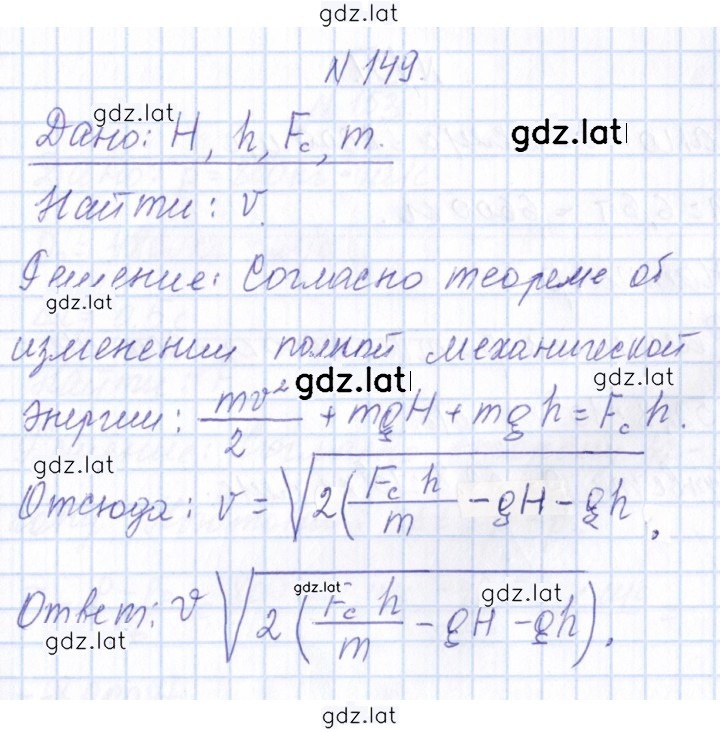 gdz.lat
N 149.
gdz.lat
Дано: H, h, Fc, m.
gdz.lat
Найти: v.
Решение: Согласно теореме об
gdz.lat
изменении полной механической
gdz.lat
gdz.lat
энергии: mv²/2 + mgH + mgh = Fc h.
gdz.lat
Отсюда: v = √(2(Fc h/m - gH - gh,
gdz.lat
gdz.lat
Ответ: v √(2(Fc h/m - gH - gh).
gdz.lat
gdz.lat